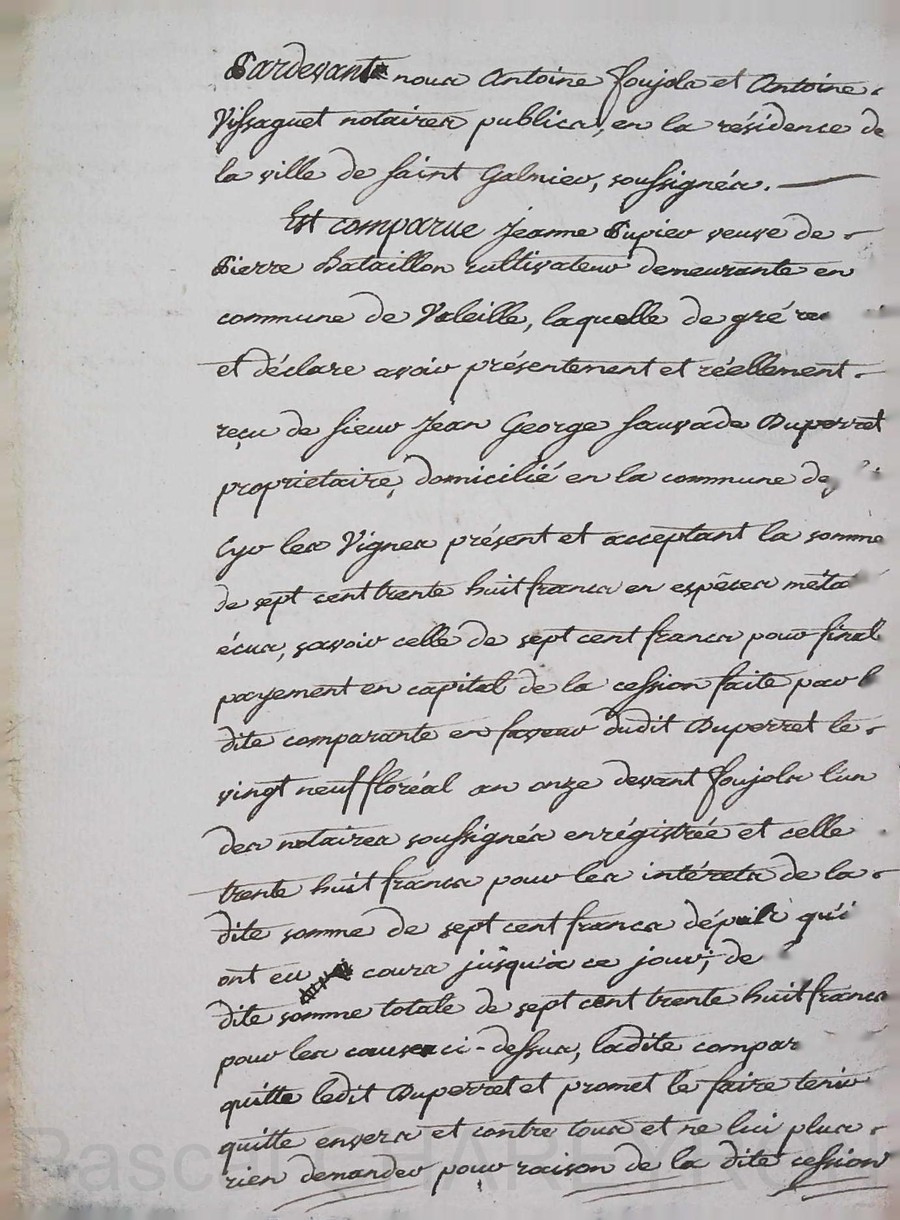 Pardevant nous Antoine Foujols et Antoine
Vissaguet notaires publics, en la résidence de
la ville de saint Galmier, soussignés.
Est comparue Jeanne Pupier veuve de
Pierre Bataillon cultivateur demeurante en
commune de Valeille, laquelle de gré
et déclare avoir présentement et réellement
reçu de sieur Jean George Sauvade Duperret
propriétaire, domicilié en la commune de
Cyr les Vignes présent et acceptant la somme
de sept cent trente huit francs en espèces
écus, savoir celle de sept cent francs pour final
payement en capital de la cession faite par
dite comparante en faveur dudit Duperret le
vingt neuf floréal an onze devant Foujols l'un
des notaires soussignés enrégistrée et celle
trente huit francs pour les intérets de la
dite somme de sept cent francs dépuis qu'i
ont eu cours jusqu'à ce jour; de
dite somme totale de sept cent trente huit francs
pour les causes ci-dessus, ladite compar
quitte ledit Duperret et promet le faire tenir
quitte envers et contre tous et ne lui plus
rien demander pour raison de la dite cession
Pascal CHAREYRON